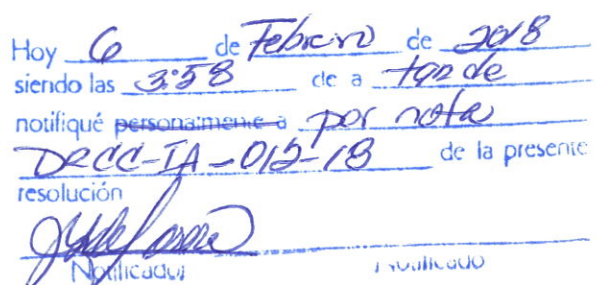 Hoy 6 de Febrero de 2018
siendo las 3:58 de a tarde
notifiqué personalmente a por nota
DRCC-IA-012-18 de la presente
resolución
Notificador Notificado